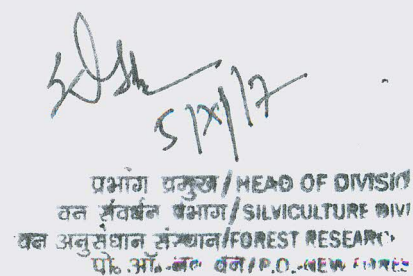 5/XI/17
प्रभाग प्रमुख/HEAD OF DIVISIO
वन संवर्धन प्रभाग/SILVICULTURE DIVI
वन अनुसंधान संस्थान/FOREST RESEARC
पो. ऑ. वन/P.O. NEW